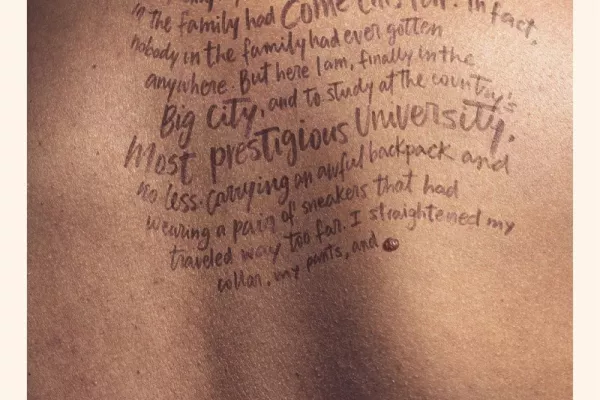 in the family had Come this far. In fact,
nobody in the family had ever gotten
anywhere. But here I am, finally in the
Big City, and to study at the country's
Most prestigious University,
no less. Carrying an awful backpack and
wearing a pair of sneakers that had
traveled way too far. I straightened my
collar, my pants, and